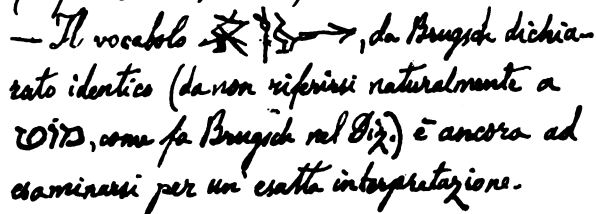 — Il vocabolo , da Brugsch dichia-
rato identico (da non riferirsi naturalmente a
, come fa Brugsch nel Diz.) è ancora ad
esaminarsi per un' esatta interpretazione.